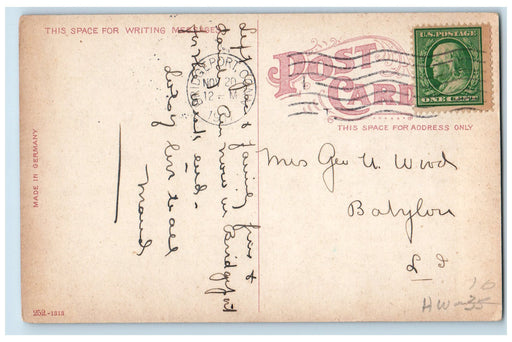 THIS SPACE FOR WRITING MESSAGES
POST
CARD
THIS SPACE FOR ADDRESS ONLY
U.S. POSTAGE
ONE
BRIDGEPORT CONN
NOV 20
12 - M
fine &
Am now in Bridgeport
end.
love to all
Maud
Mrs Geo W. Wood
Babylon
L I
MADE IN GERMANY
252-1515
10
35